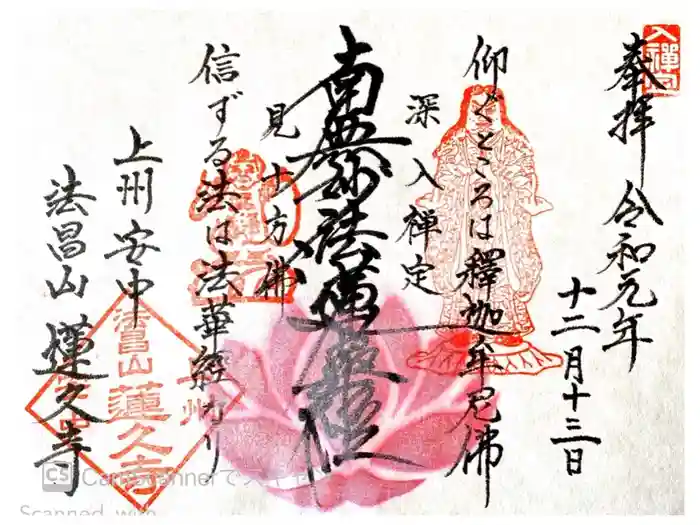 入禪定
奉拝 令和元年
十二月十三日
仰ぐところは釋迦牟尼佛
深入禅定
南無妙法蓮華経
見十方佛
信ずる法は法華経なり
上州安中
法昌山 蓮久寺
法昌山
蓮久寺
上州
安中
CS CamScannerでスキャン
Scanned with